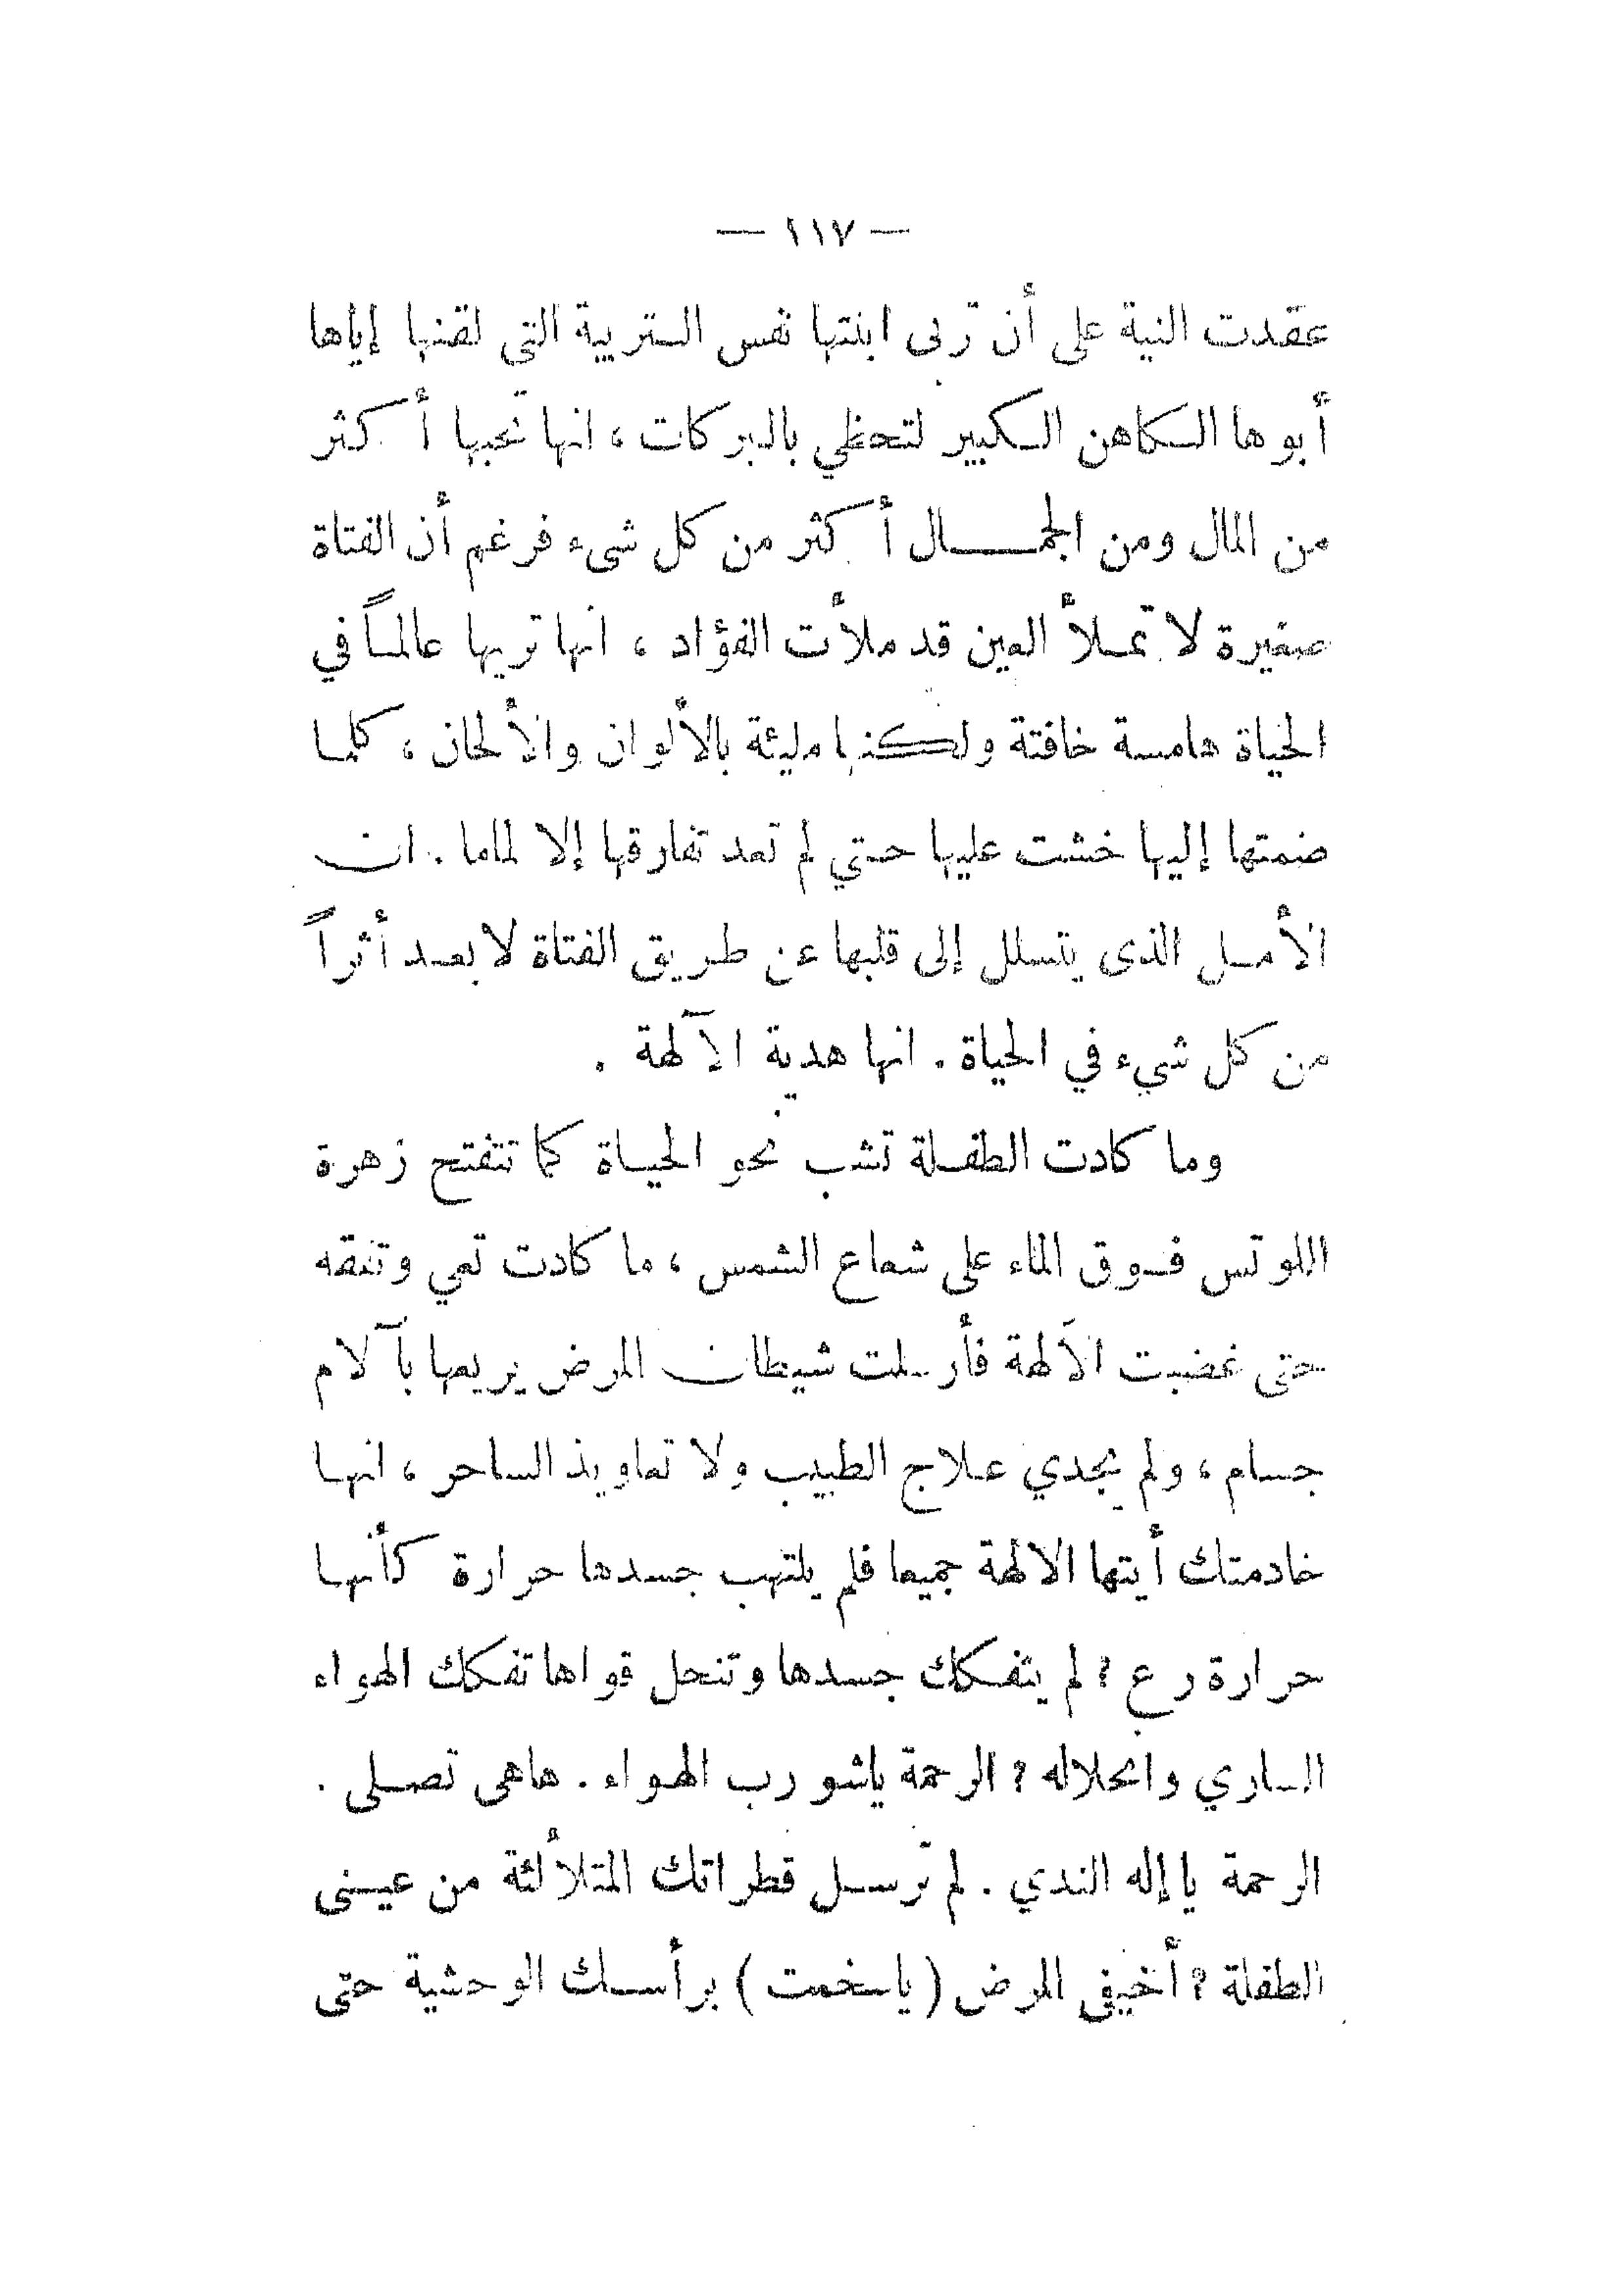 — ١١٧ —
عقدت النية على أن تربى ابنتها نفس التربية التى لقنها إياها
أبوها الكاهن الكبير لتحظي بالبركات ، انها تحبها أكثر
من المال ومن الجمال أكثر من كل شىء فرغم أن الفتاة
صغيرة لا تملأ العين قد ملأت الفؤاد ، انها تريها عالماً في
الحياة هامسة خافتة ولكنها مليئة بالألوان والألحان ، كلما
ضمتها إليها خشت عليها حتي لم تعد تفارقها إلا لماما . ان
الأمل الذى يتسلل إلى قلبها عن طريق الفتاة لا بعد أثراً
من كل شيء في الحياة . انها هدية الآلهة .
وما كادت الطفلة تشب نحو الحياة كما تتفتح زهرة
اللوتس فوق الماء على شعاع الشمس ، ما كادت تعي وتفقه
حتى غضبت الآلهة فأرسلت شيطان المرض يريعها بآلام
جسام ، ولم يجدي علاج الطبيب ولا تعاويذ الساحر ، انها
خادمتك أيتها الالهة جميعا فلم يلتهب جسدها حرارة كأنها
حرارة رع ؟ لم يتفكك جسدها وتنحل قواها تفكك الهواء
الساري وانحلاله ؟ الرحمة ياشو رب الهواء . هاهى تصلى .
الرحمة يا إله الندي . لم ترسل قطراتك المتلألئة من عينى
الطفلة ؟ أخيفى المرض ( ياسخمت ) برأسك الوحشية حتى